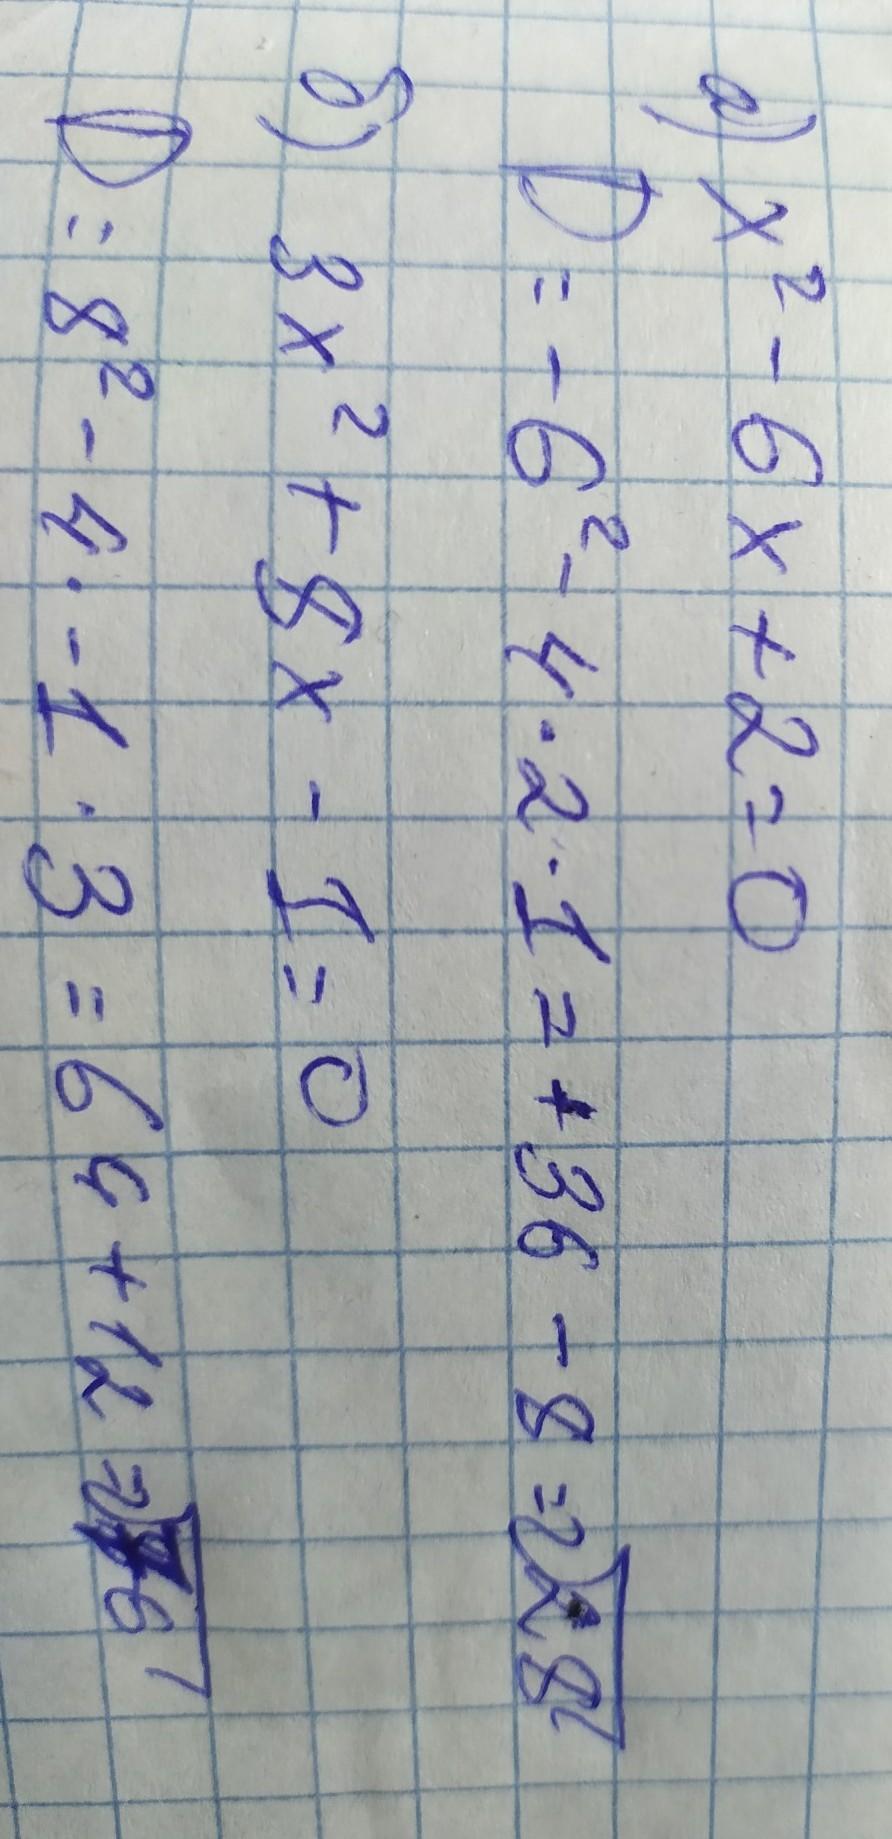 а) x² - 6x + 2 = 0
D = -6² - 4 · 2 · 1 = +36 - 8 = √28
б) 3x² + 8x - 1 = 0
D = 8² - 4 · -1 · 3 = 64 + 12 = √76